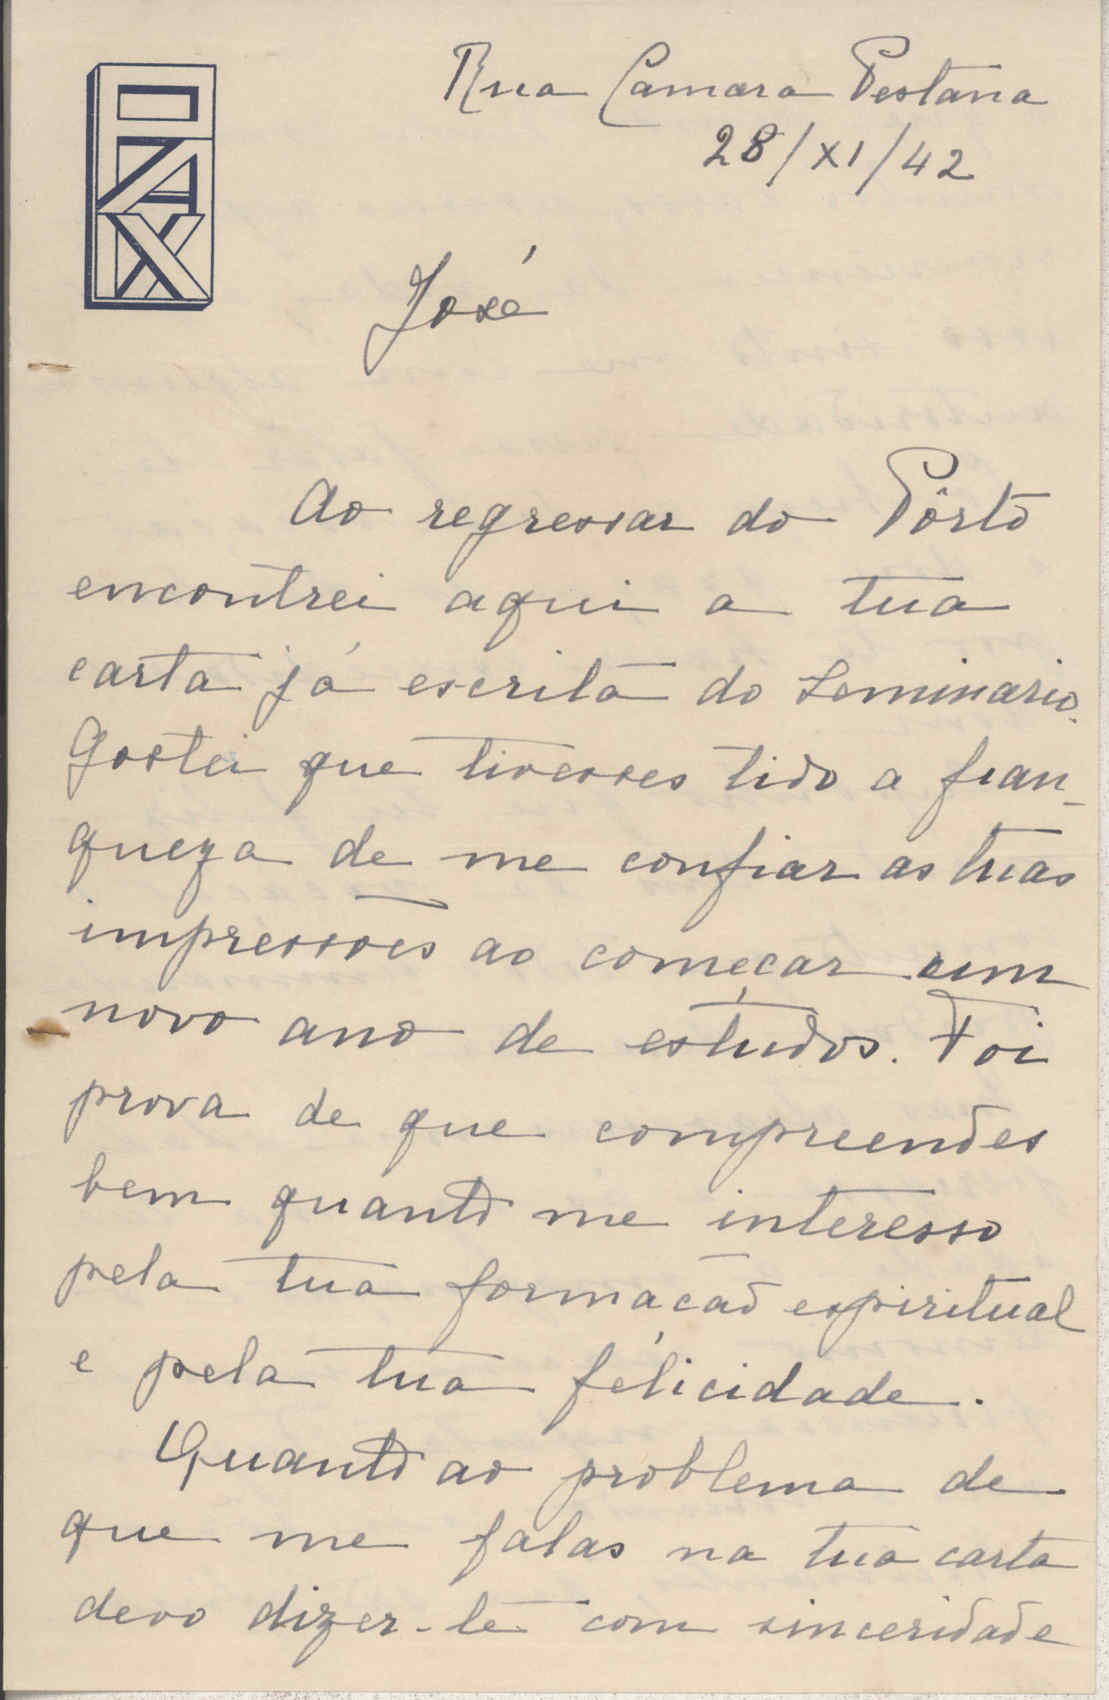 PAX
Rua Camara Pestana
28/XI/42
José
Ao regressar do Pôrto
encontrei aqui a tua
carta já escrita do Seminario.
Gostei que tivesses tido a fran-
queza de me confiar as tuas
impressões ao começar um
novo ano de estudos. Foi
prova de que compreendes
bem quanto me interesso
pela tua formação espiritual
e pela tua felicidade.
Quanto ao problema de
que me falas na tua carta
devo dizer-te com sinceridade